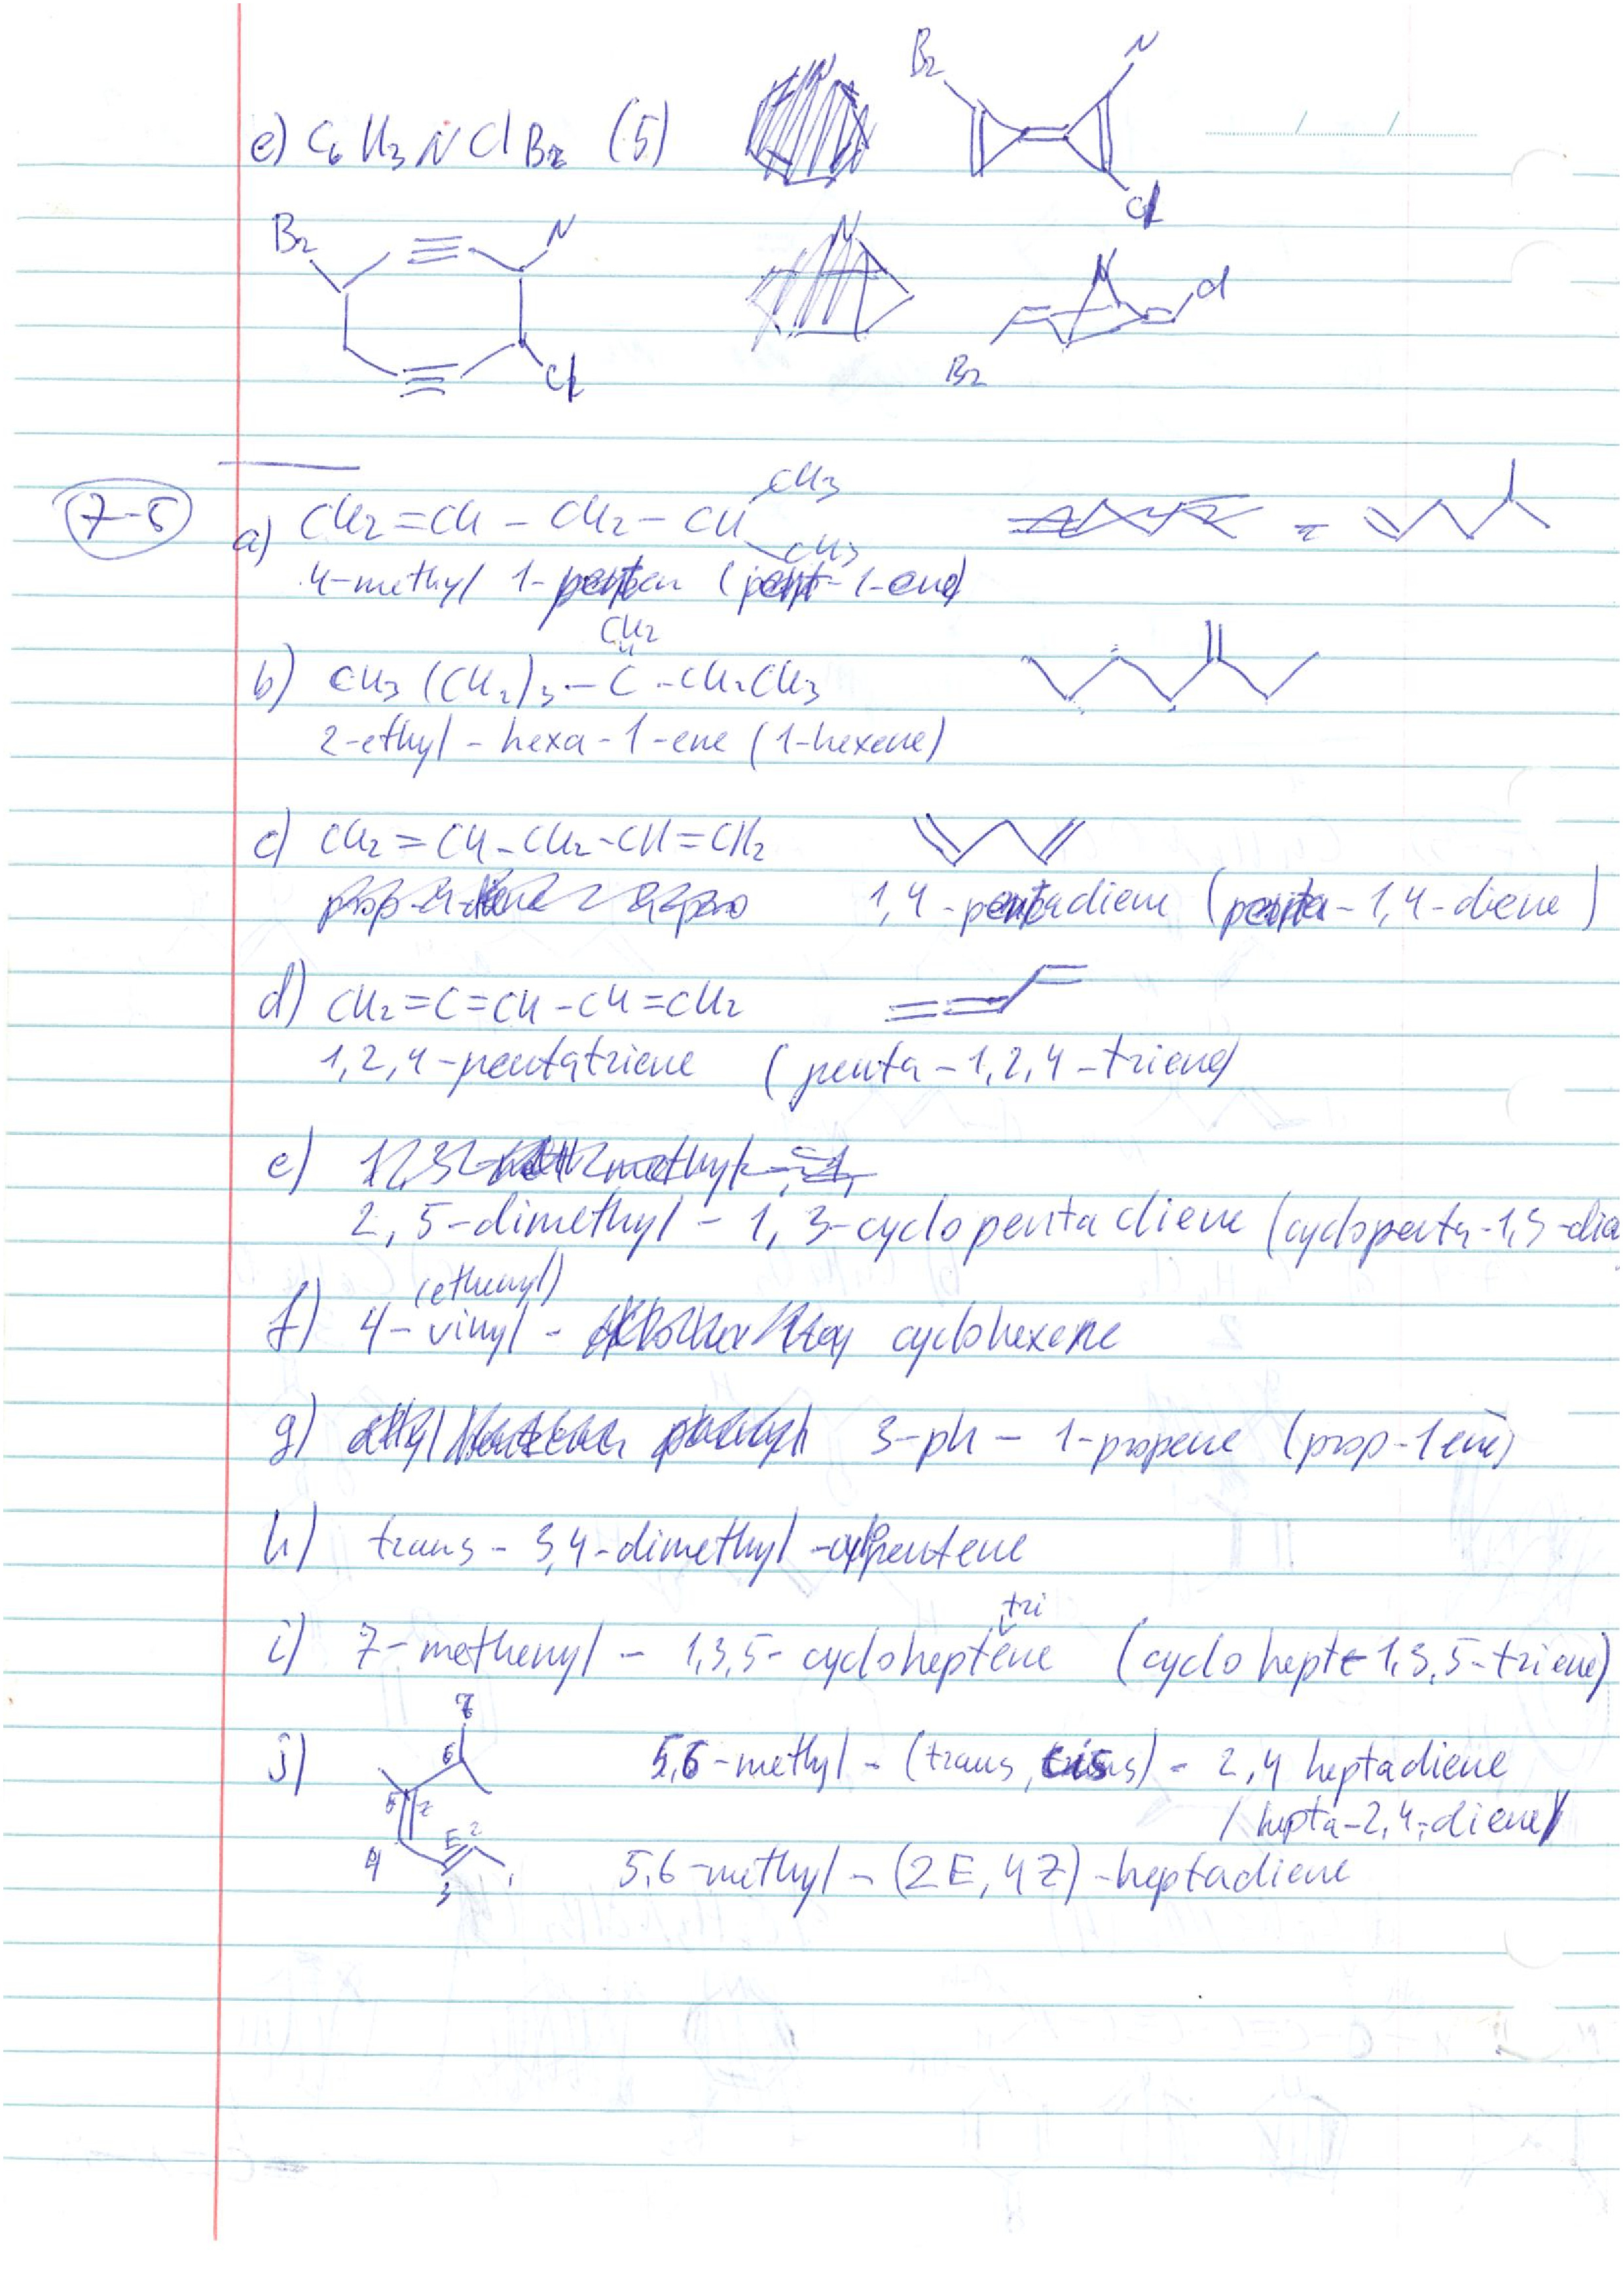 e) C6 H3 N Cl Br (5)
Br N
Cl
Br N
Cl
N Cl
Br
7-5
a) CH2 = CH - CH2 - CH
CH3
CH3
4-methyl 1-penten (pent-1-ene)
CH2
b) CH3 (CH2)3 - C - CH2CH3
2-ethyl - hexa - 1-ene (1-hexene)
c) CH2 = CH - CH2 - CH = CH2
1,4-pentadiene (penta-1,4-diene)
d) CH2 = C = CH - CH = CH2
1,2,4-pentatriene (penta-1,2,4-triene)
e)
2,5-dimethyl - 1,3-cyclopentadiene (cyclopenta-1,3-die
(ethenyl)
f) 4-vinyl - cyclohexene
g) 3-ph - 1-propene (prop-1ene)
h) trans - 3,4-dimethyl - pentene
tri
i) 7-methenyl - 1,3,5-cycloheptene (cyclohept-1,3,5-triene)
j) 5,6-methyl - (trans, cis) - 2,4 heptadiene
/hepta-2,4-diene/
7
6
5 Z
4 E 2
3 1
5,6-methyl - (2E, 4Z) - heptadiene